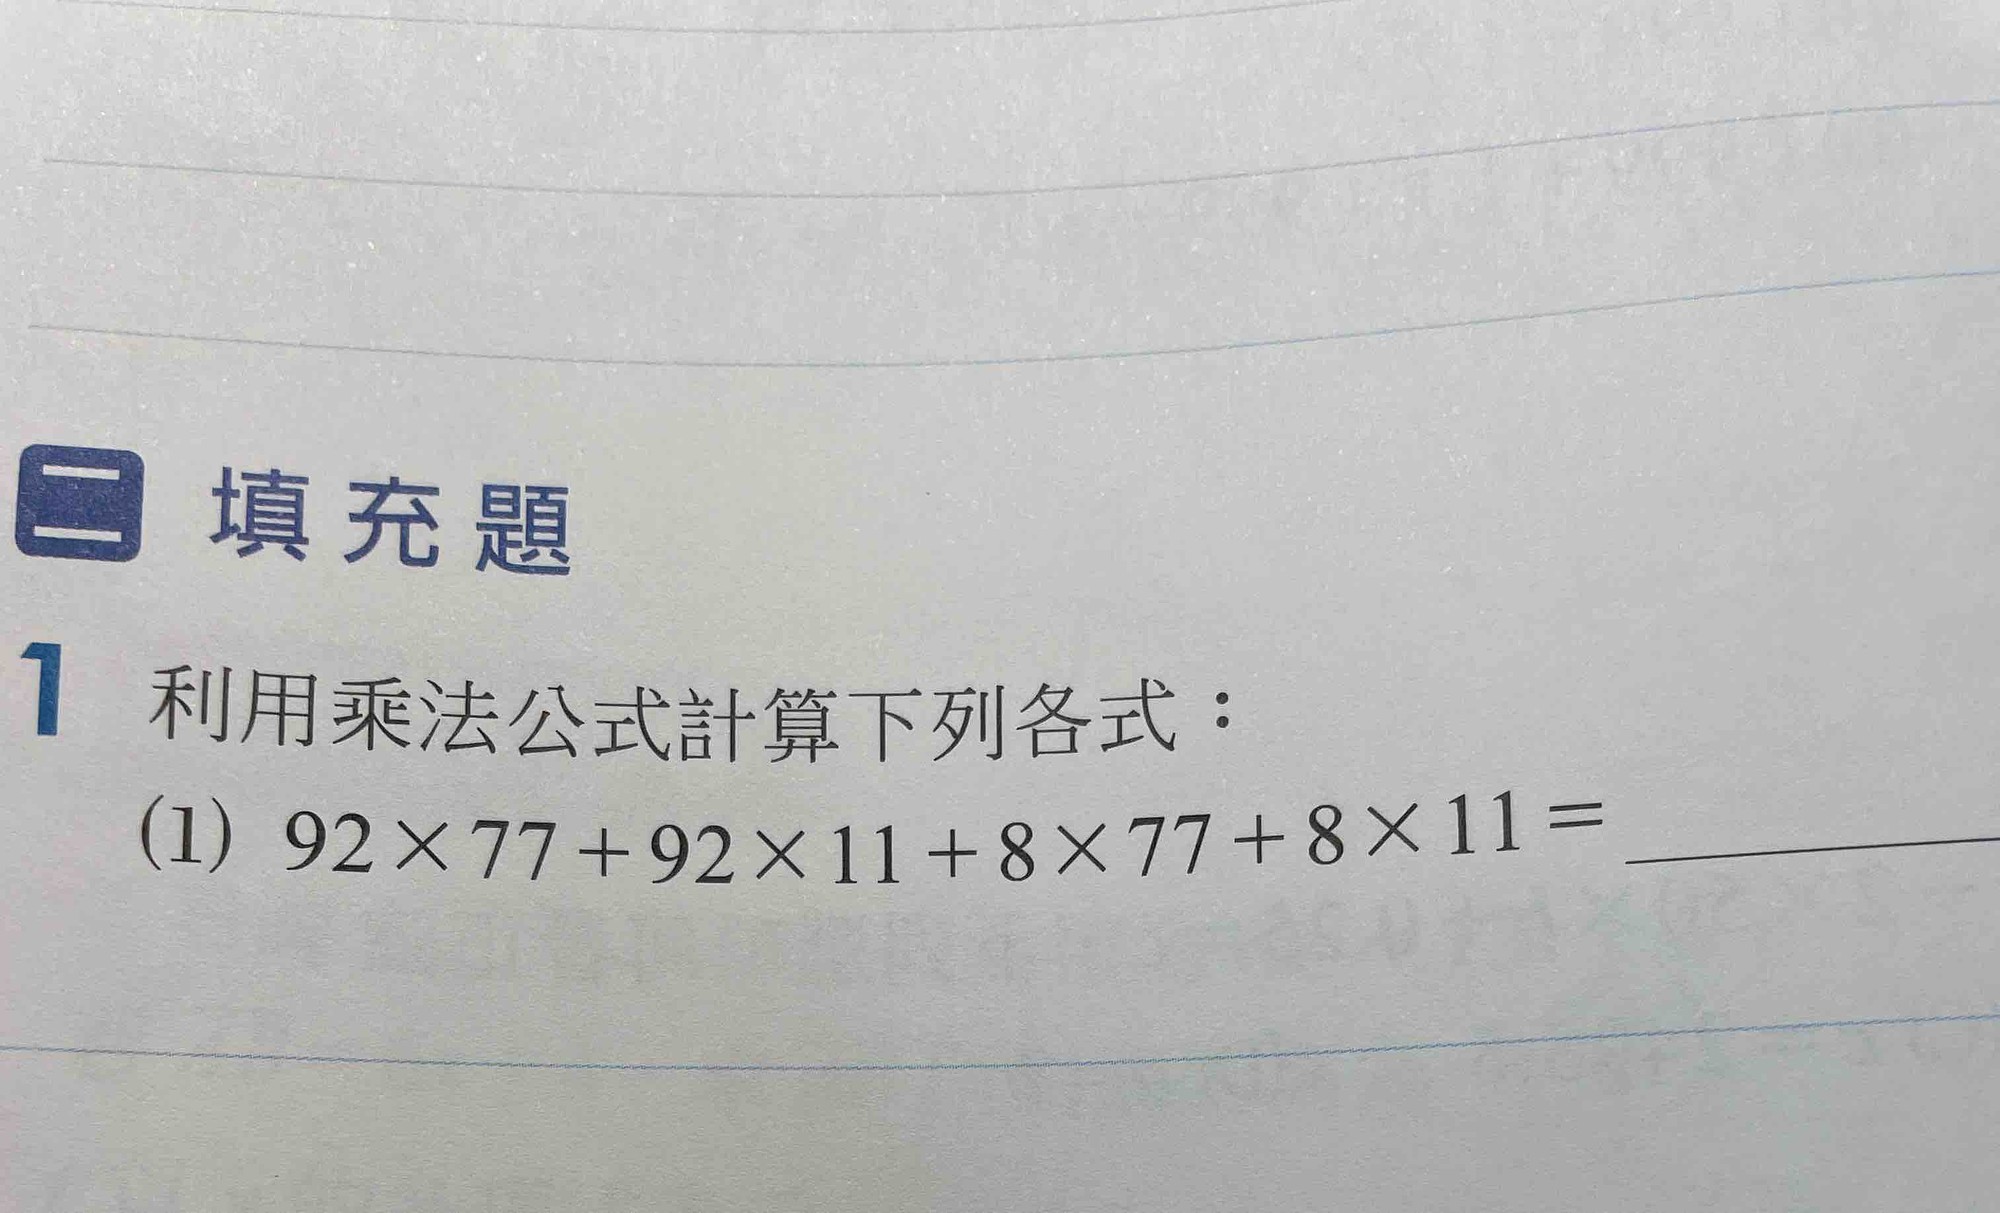 二 填充題
1 利用乘法公式計算下列各式：
(1) 92×77+92×11+8×77+8×11=